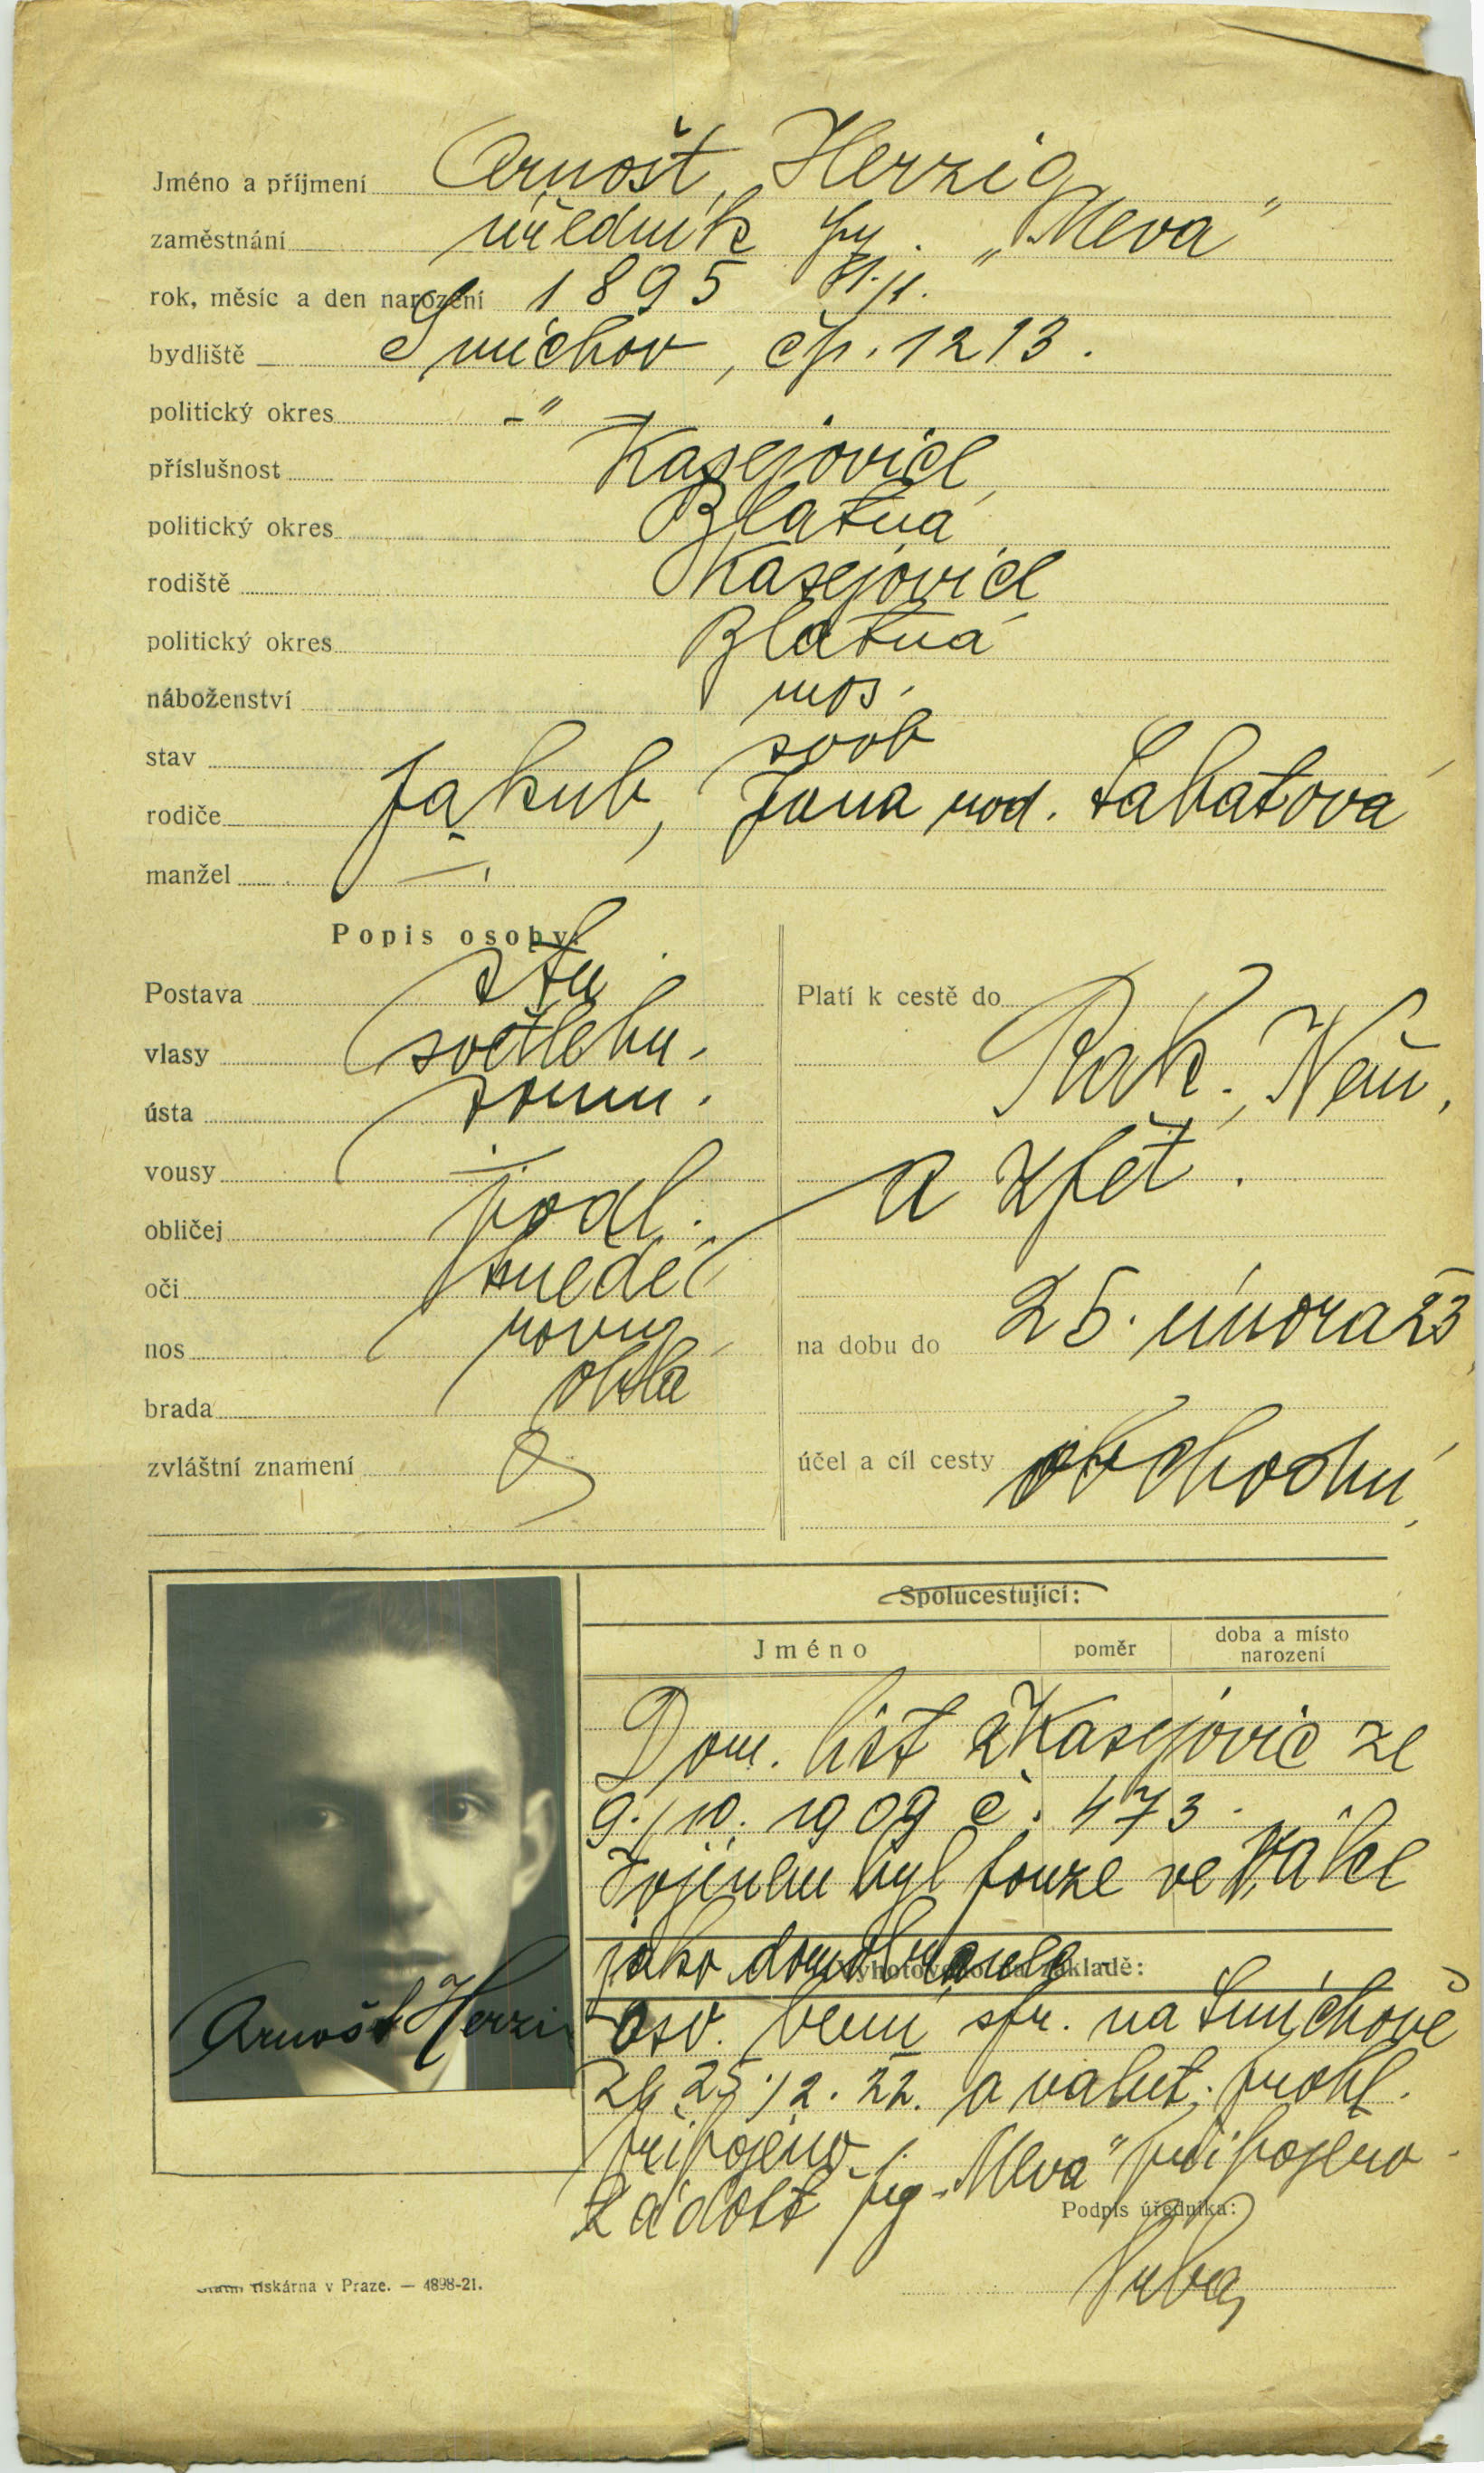 Jméno a příjmení Arnošt Herzig
zaměstnání úředník fy. „Meva“
rok, měsíc a den narození 1895
bydliště Smíchov, čp. 1213.
politický okres -"
příslušnost Kasejovice
politický okres Blatná
rodiště Kasejovice
politický okres Blatná
náboženství mos.
stav svob
rodiče Jakub, rod. Sabatova
manžel —
Popis osoby:
Postava stř
vlasy světlehn.
ústa soum.
vousy —
obličej podl.
oči hnědé
nos rovný
brada oblá
zvláštní znamení
Platí k cestě do Rak., Něm,
a zpět.
na dobu do 25. února 23
účel a cíl cesty obchodní
Spolucestující:
Jméno poměr doba a místo narození
Dom. list z Kasejovic ze
9./10. 1909 č. 473.
Vojínem byl pouze ve válce
jako domobranec
Vyhotoveno na základě:
osv. bern spr. na Smíchově
25./2. 22. a valut. prohl.
připojeno.
žádost fy „Meva“ připojena
Podpis úředníka:
Arnošt Herzi
Státní tiskárna v Praze. — 4898-21.